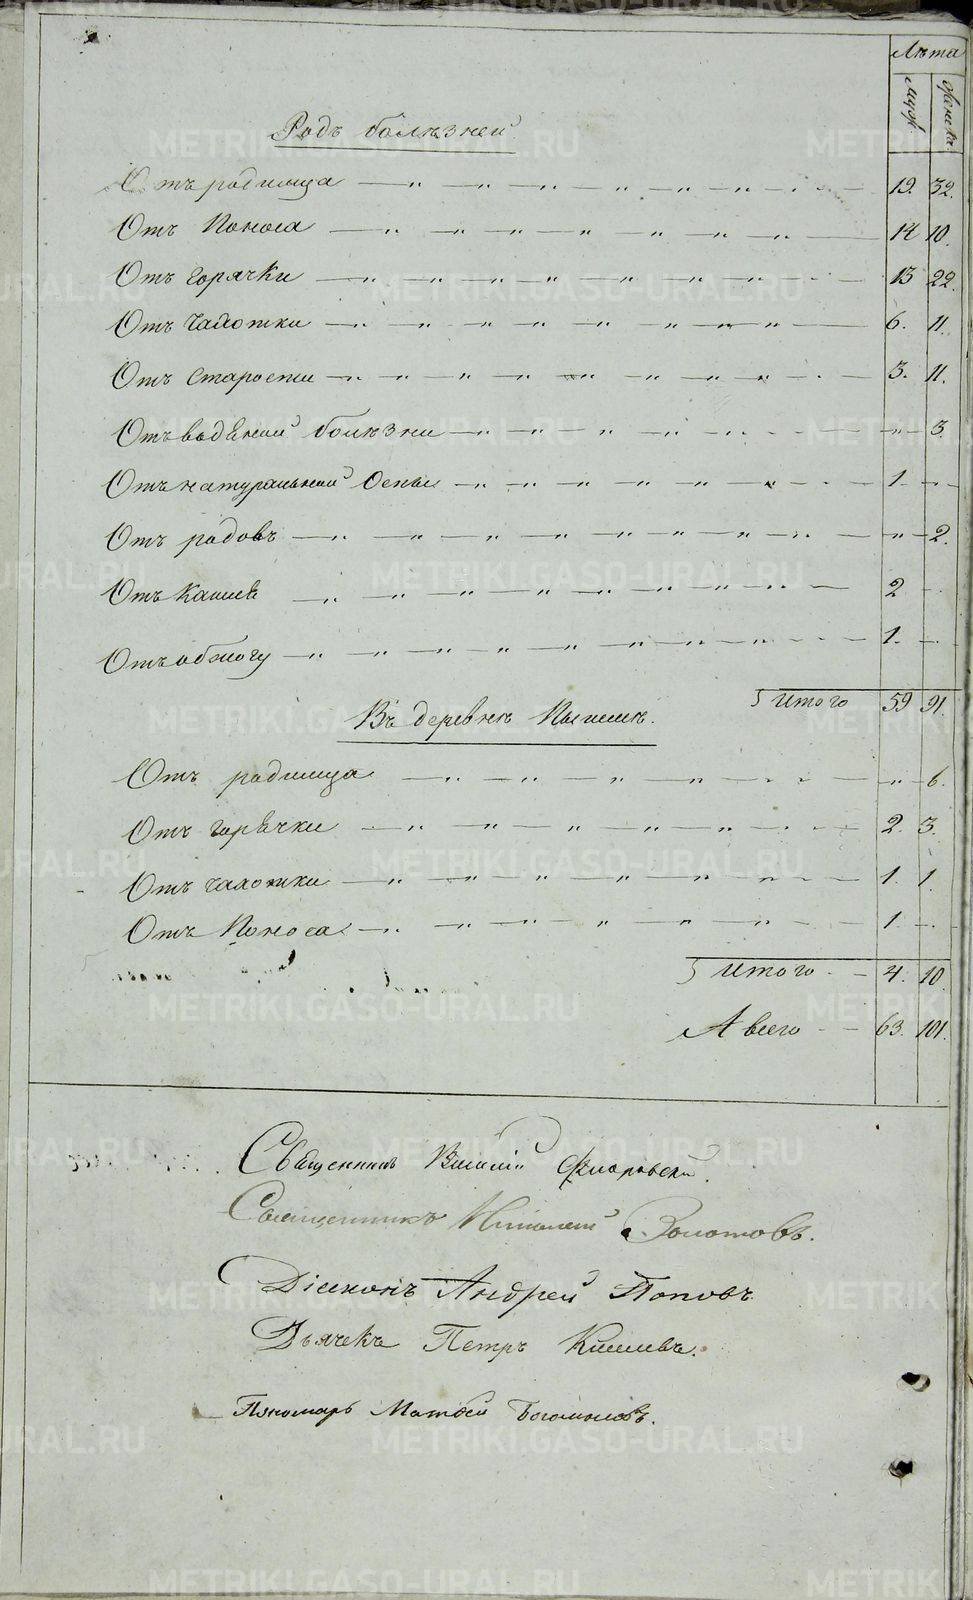 Лѣта
муж. женск.
Родъ болѣзней
Отъ родимца — „ — „ — „ „ — „ — „ — 19. 32.
Отъ Поноса — „ — „ — „ — „ — „ — „ — 14 10.
Отъ горячки — „ — „ — „ — „ — „ — „ — 13 22.
Отъ Чахотки — „ — „ — „ — „ — „ — „ — 6. 11.
Отъ Старости — „ — „ — „ — „ — „ — „ — 3. 11.
Отъ водѣной болѣзни — „ — „ — „ — „ — „ — 3.
Отъ натуральной Оспы — „ — „ — „ — „ — „ — 1. —
Отъ родовъ — „ — „ — „ — „ — „ — „ — 2.
Отъ Кашлѣ — „ — „ — „ — „ — „ — „ — 2 —
Отъ обжогу — „ — „ — „ — „ — „ — „ — 1. —
Итого 59 91.
Въ деревнѣ Пышмѣ.
Отъ родимца — „ — „ — „ — „ — „ — 6.
Отъ горѣчки — „ — „ — „ — „ — „ — 2. 3.
Отъ чахотки — „ — „ — „ — „ — „ — 1. 1.
Отъ Поноса — „ — „ — „ — „ — „ — 1. —
Итого — 4. 10
А всего — 63. 101.
Священникъ Василій Флоровскій.
Священникъ Золотовъ.
Діаконъ Андрей Поповъ
Дьячекъ Петръ
Пономарь Матвей Богомоловъ.
METRIKI.GASO-URAL.RU